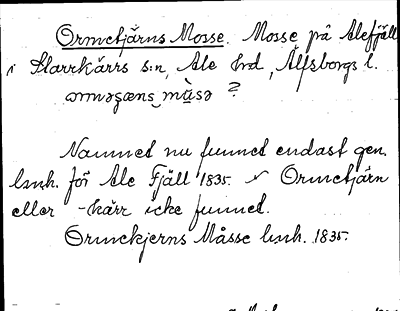 Ormetjärns Mosse. Mosse på Alefjäll
i Starrkärrs s:n, Ale hrd, Älfsborgs l.
?
Namnet nu funnet endast gen.
lmh. för Ale Fjäll 1835. Ormetjärn
eller -kärr icke funnet.
Ormekjerns Måsse lmh. 1835.